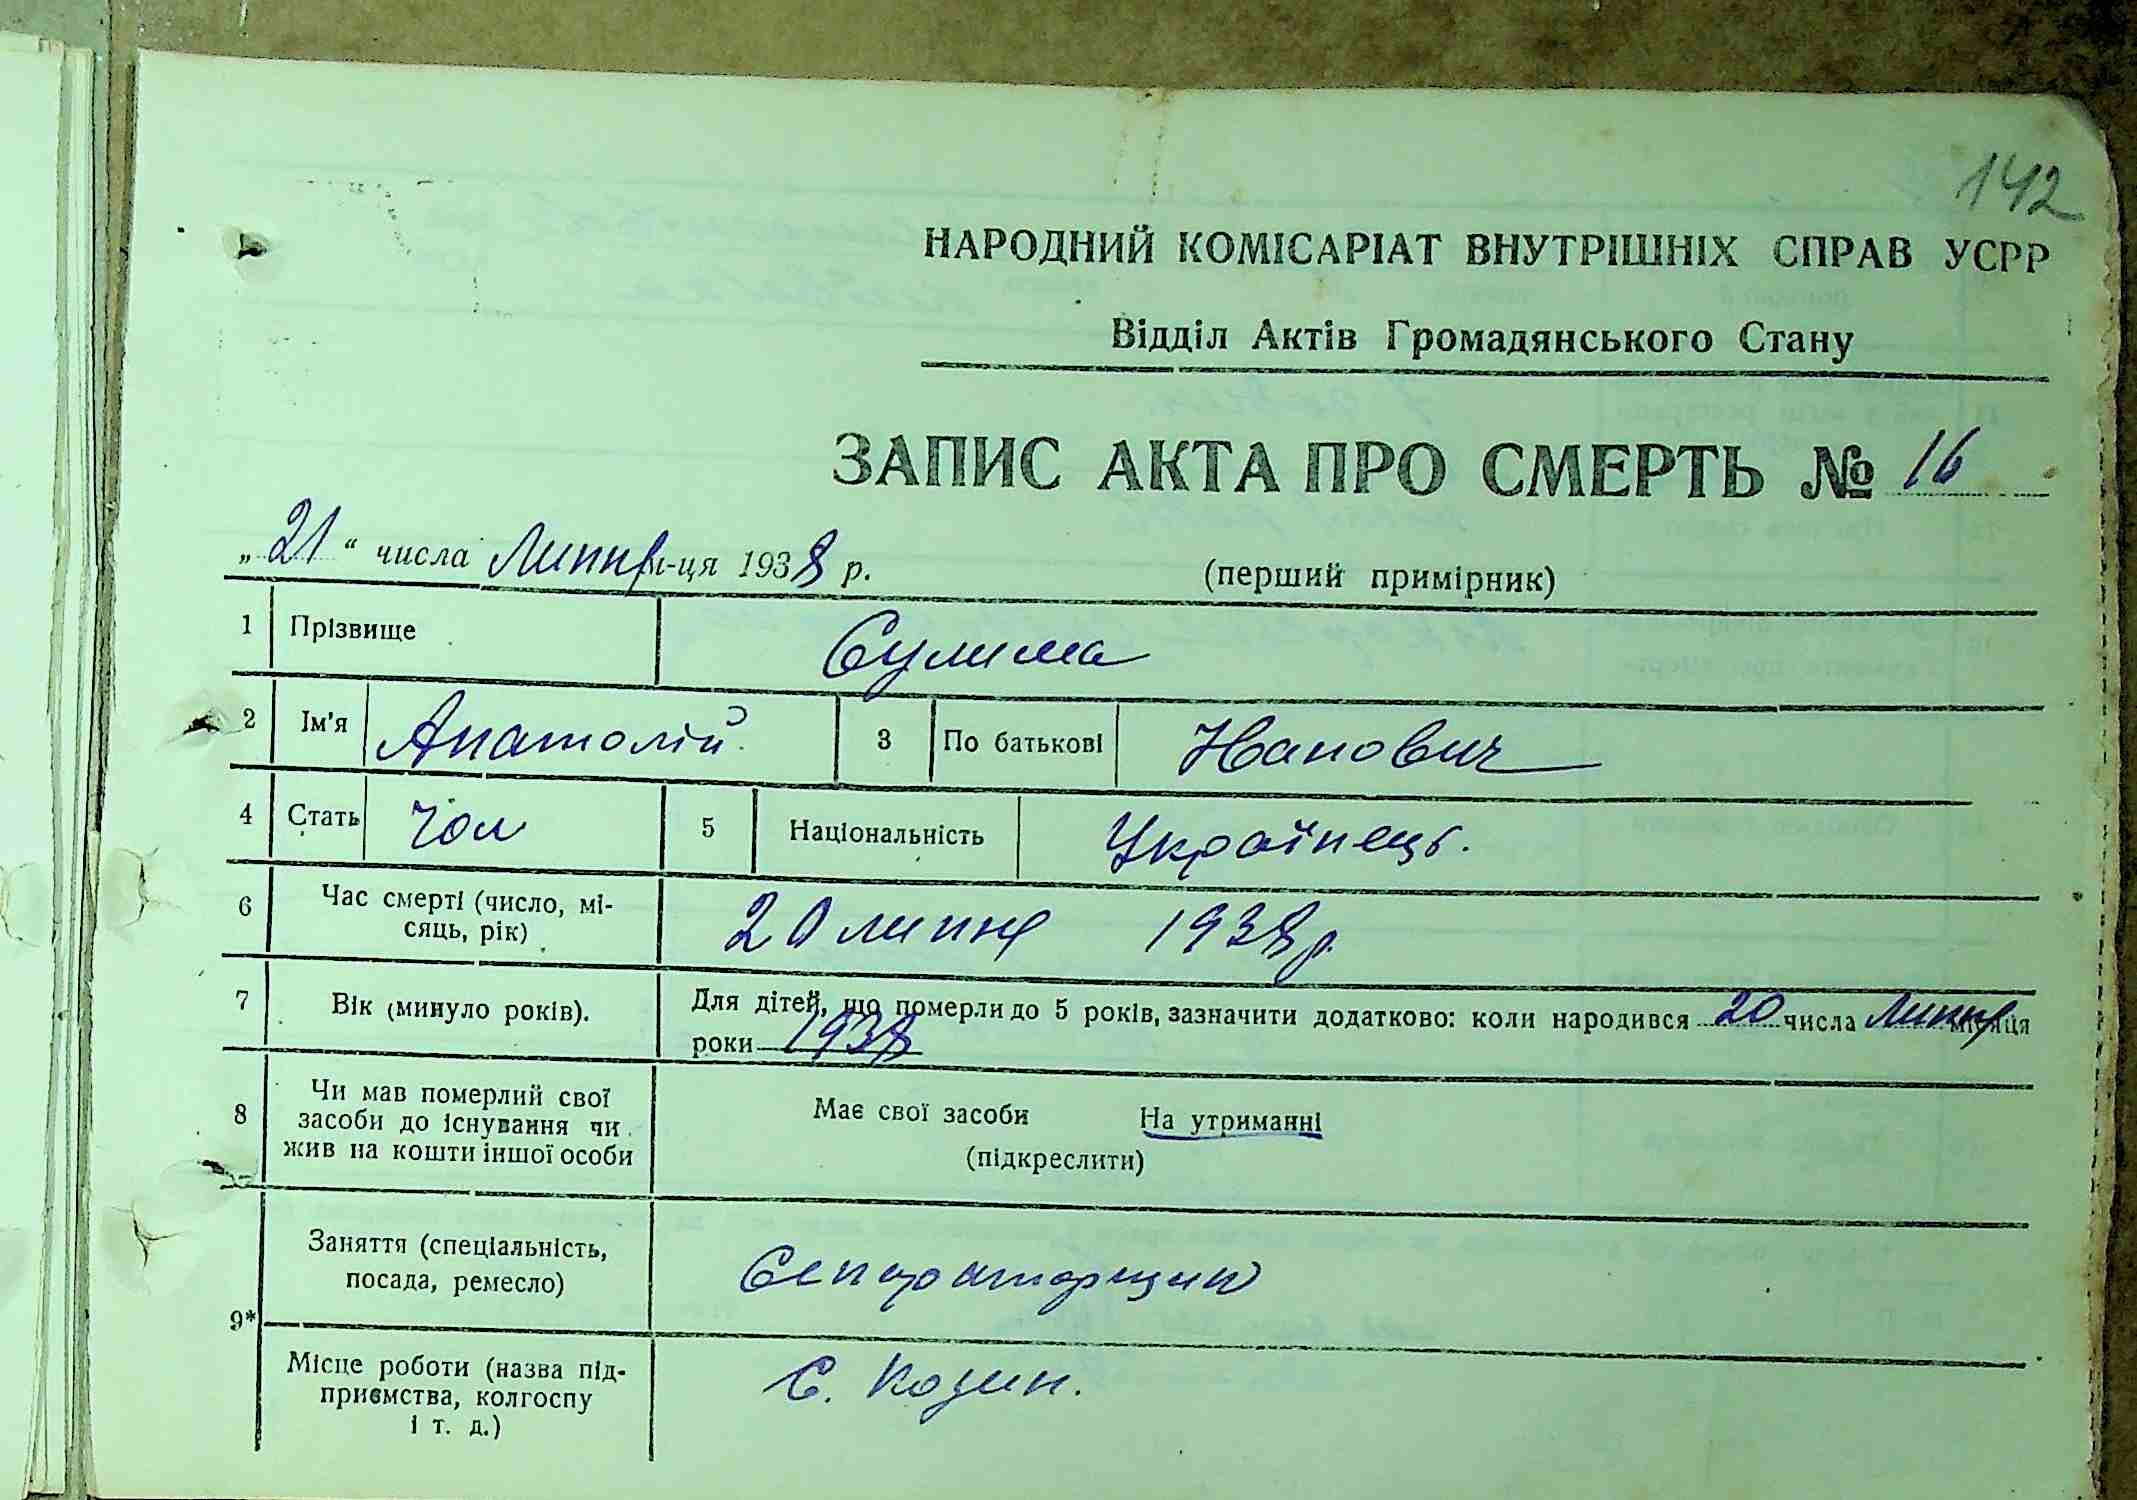 142
НАРОДНИЙ КОМІСАРІАТ ВНУТРІШНІХ СПРАВ УСРР
Відділ Актів Громадянського Стану
ЗАПИС АКТА ПРО СМЕРТЬ № 16
„ 21 “ числа Липня м-ця 1938 р. (перший примірник)
1 Прізвище Сулима
2 Ім'я Анатолій 3 По батькові Іванович
4 Стать Чол 5 Національність Українець.
6 Час смерті (число, мі-
сяць, рік) 20 липня 1938 р.
7 Вік (минуло років). Для дітей, що померли до 5 років, зазначити додатково: коли народився 20 числа Липня місяця
роки 1938
8 Чи мав померлий свої
засоби до існування чи
жив на кошти іншої особи
Має свої засоби На утриманні
(підкреслити)
9* Заняття (спеціальність,
посада, ремесло) Сепараторщик
Місце роботи (назва під-
приємства, колгоспу
і т. д.) С. Козин.